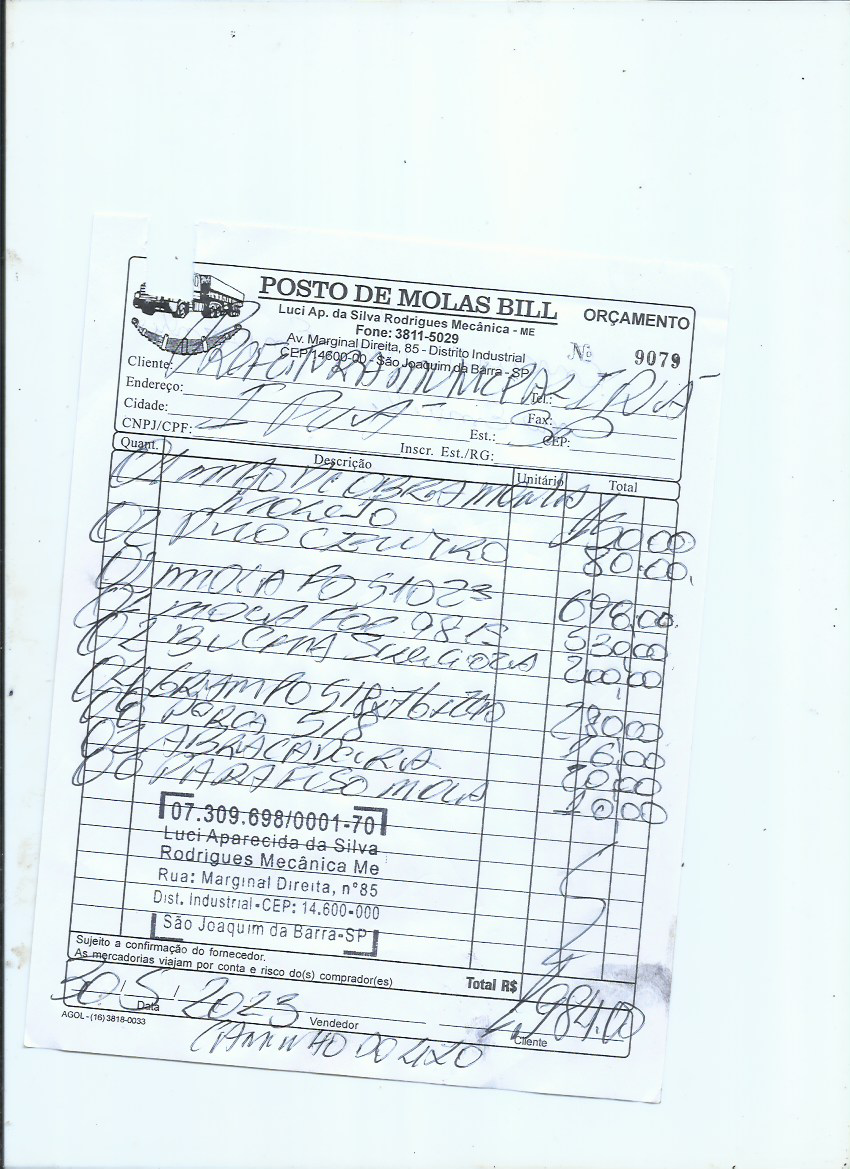 POSTO DE MOLAS BILL
ORÇAMENTO
Luci Ap. da Silva Rodrigues Mecânica - ME
Fone: 3811-5029
Av. Marginal Direita, 85 - Distrito Industrial
CEP 14600-00 - São Joaquim da Barra - SP
Nº 9079
Cliente: PREFEITURA MUNICIPAL IPUÃ
Endereço: Tel.:
Cidade: IPUÃ Fax:
Est.: SP CEP:
CNPJ/CPF: Inscr. Est./RG:
Quant. Descrição Unitário Total
01 MÃO DE OBRA
MOLEJO 160.00
02 PINO CENTRO 80.00
01 MOLA 696.00
01 MOLA 530.00
02 BUCHA 200.00
04 GRAMPO 280.00
PORCA 5/8 16.00
ABRAÇADEIRA 20.00
PARAFUSO MOLA
07.309.698/0001-70
Luci Aparecida da Silva
Rodrigues Mecânica Me
Rua: Marginal Direita, nº85
Dist. Industrial-CEP: 14.600-000
São Joaquim da Barra-SP
Sujeito a confirmação do fornecedor.
As mercadorias viajam por conta e risco do(s) comprador(es)
Total R$ 1.984.00
30/5/2023
Data Vendedor Cliente
AGOL - (16) 3818-0033
CAMINHÃO DO LIXO